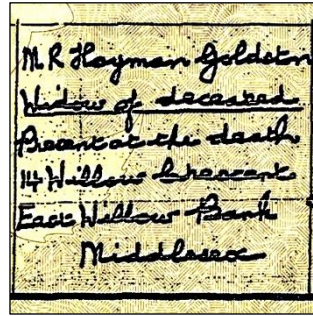 M. R Hayman Goldstn
Widow of deceased
Present at the death
14 Willow Crescent
East Willow Bank
Middlesex